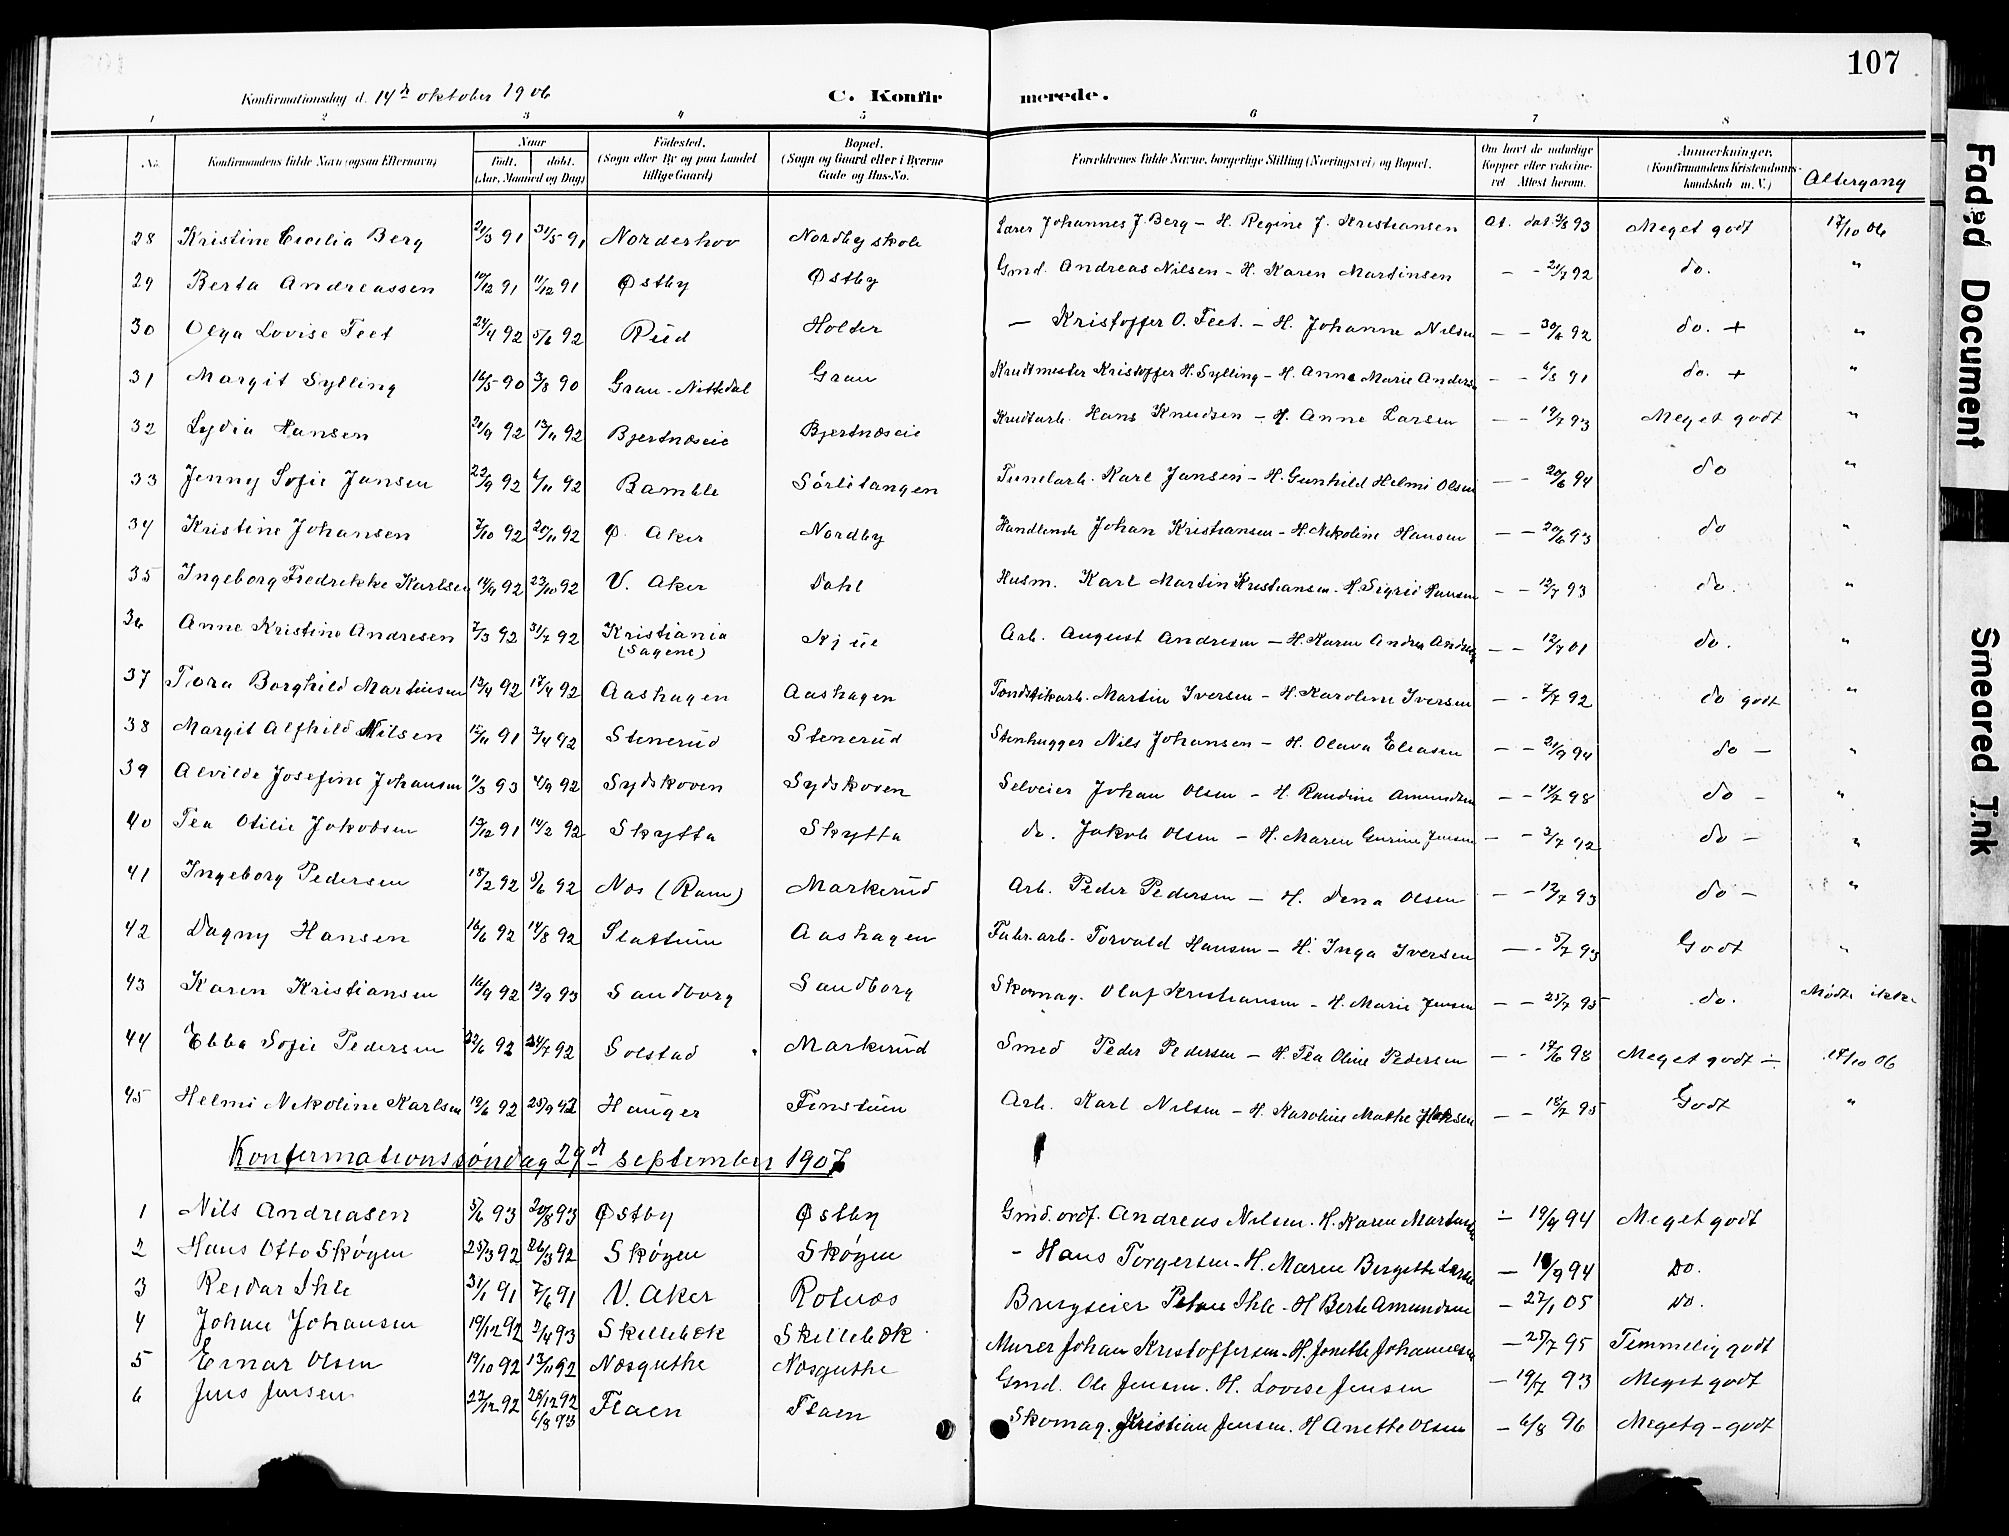 107
Konfirmationsdag d. 14de oktober 1906 C. Konfirmerede.
1 2 3 4 5 6 7 8
No. Konfirmandens fulde Navn (ogsaa Efternavn) Naar født. døbt. (Aar, Maaned og Dag) Fødested. (Sogn eller By og paa Landet tillige Gaard) Bopæl. (Sogn og Gaard eller i Byerne Gade og Hus-No. Forældrenes fulde Navne, borgerlige Stilling (Næringsvei) og Bopæl. Om havt de naturlige Kopper eller vaccineret. Attest herom. Anmærkninger. (Konfirmandens Kristendomskundskab m. V.) Altergang
28 Kristine Cecilia Berg 21/3 91 31/5 91 Norderhov Nordby skole Lærer Johannes J. Berg - H. Regine J. Kristiansen At. dat. 3/8 93 Meget godt 17/10 06
29 Berta Andreassen 10/12 91 11/12 91 Østby Østby Gmd. Andreas Nilsen - H. Karen Martinsen - - 21/7 92 do. "
30 Olga Lovise Teet 24/4 92 5/6 92 Rud Holter - Kristoffer O. Teet. - H. Johanne Nilsen - - 30/6 92 do. + "
31 Margit Sylling 16/5 90 3/8 90 Grau-Nittedal Grau Krudtmester Kristoffer H. Sylling - H. Anne Marie Anders - - 6/8 91 do. + "
32 Lydia Hansen 21/9 92 13/11 92 Bjertnæseie Bjertnæseie Krudtarb. Hans Knudsen - H. Anne Larsen - - 19/7 93 Meget godt "
33 Jenny Sofie Jansen 22/9 92 6/11 92 Bamble Sørlitangen Tunelarb. Karl Jansen - H. Gunhild Helmi Olsen - - 20/6 94 do "
34 Kristine Johansen 7/10 92 20/11 92 Ø. Aker Nordby Handlende Johan Kristiansen - H. Nikoline Hansen - - 20/6 93 do "
35 Ingeborg Fredrikke Karlsen 14/9 92 23/10 92 V. Aker Dahl Husm. Karl Martin Kristiansen - H. Sigrid Hansen - - 12/7 93 do. "
36 Anne Kristine Andresen 7/3 92 31/7 92 Kristiania (Sagene) Kjue Arb. August Andresen - H. Karen Andrea - - 12/7 01 do. "
37 Tora Borghild Martinsen 13/4 92 17/4 92 Aashagen Aashagen Tændstikarb. Martin Iversen - H. Karoline Iversen - - 7/7 92 do godt "
38 Margit Alfhild Nilsen 15/11 91 3/4 92 Stenerud Stenerud Stenhugger Nils Johansen - H. Olava Eliasen - - 21/9 94 do - "
39 Alvilde Josefine Johansen 11/3 93 4/9 92 Sydskoven Sydskoven Selveier Johan Olsen - H. Randine Amundsen - - 14/7 98 do - "
40 Tea Otilie Jakobsen 13/12 91 14/2 92 Skytta Skytta do. Jakob Olsen - H. Maren Gurine Jensen - - 3/7 92 do - "
41 Ingeborg Pedersen 18/2 92 5/6 92 Næs (Rom) Markerud Arb. Peder Pedersen - H. Dena Olsen - - 12/7 93 do - "
42 Dagny Hansen 16/6 92 14/8 92 Slattum Aashagen Fabr. arb. Torvald Hansen - H. Inga Iversen - - 5/7 93 Godt "
43 Karen Kristiansen 16/9 92 12/9 93 Sandborg Sandborg Skomag. Olaf Kristiansen - H. Marie Jensen - - 25/7 95 do. Mødte ikke
44 Ebba Sofie Pedersen 22/6 92 24/7 92 Solstad Markerud Smed Peder Pedersen - H. Tea Oline Pedersen - - 17/6 98 Meget godt ÷ 17/10 06
45 Helmi Nikoline Karlsen 12/6 92 25/9 42 Hauger Finstum Arb. Karl Nilsen - H. Karoline Mathe - - 18/7 95 Godt "
Konfirmationssøndag 29de september 1907
1 Nils Andreasen 5/6 93 20/8 93 Østby Østby Gmd. ordf. Andreas Nilsen. H. Karen Martinsen - 19/9 94 Meget godt
2 Hans Otto Skøyen 25/3 92 26/3 92 Skøyen Skøyen - Hans Torgersen - H. Maren Bergethe Larsen - /9 94 Do.
3 Reidar Ihle 31/1 91 7/6 91 V. Aker Rotnæs Brugseier Ihle - H Berte Amundsen - 27/1 05 Do.
4 Johan Johansen 19/12 92 3/4 93 Skillebæk Skillebæk Murer Johan Kristoffersen - H. Jonette Johannesen - 25/7 95 Temmelig godt
5 Einar Olsen 19/10 92 13/11 92 Næsguthe Næsguthe Gmd. Ole Jensen. H. Lovise Jensen - 19/7 93 Meget godt
6 Jens Jensen 22/12 92 25/12 92 6/8 93 Flaen Flaen Skomag. Kristian Jensen. H Anette Olsen - 6/8 96 Meget g - godt
Faded Document
Smeared Ink